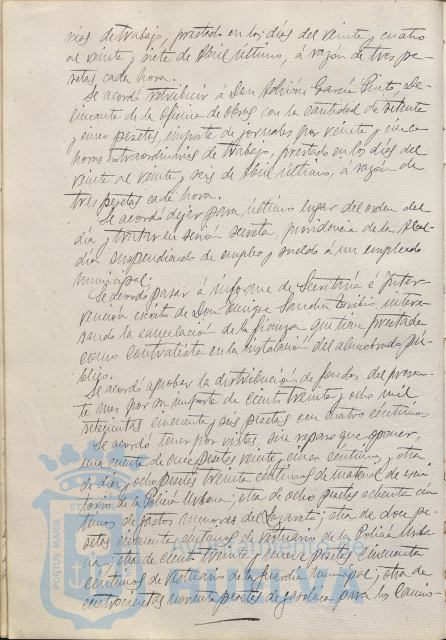 ras de trabajo, prestado en los días del veinte y cuatro
al veinte y siete de Abril último, á razón de tres pe-
setas cada hora.
Se acordó retribuir á Don Adrián García Pinto, De-
lineante de la Oficina de obras con la cantidad de setenta
y cinco pesetas importe de jornales por veinte y cinco
horas extraordinarias de trabajo, prestado en los días del
veinte al veinte y seis de Abril último, á razón de
tres pesetas cada hora.
Se acordó dejar para último lugar del orden del
día y tratar en sesión secreta, providencia de la Alcal-
día suspendiendo de empleo y sueldo á un empleado
municipal.
Se acordó pasar á informe de Secretaría é Inter-
vención escrito de Don Enrique Sánchez Toribio intere-
sando la cancelación de la fianza que tiene prestada
como contratista en la instalación del alumbrado pú-
blico.
Se acordó aprobar la distribución de fondos del presen-
te mes por un importe de ciento treinta y ocho mil
setecientas cincuenta y seis pesetas con cuatro céntimos.
Se acordó tener por vistas, sin reparo que oponer,
una cuenta de once pesetas veinte y cinco céntimos; otra
de diez y ocho pesetas treinta céntimos de material de escri-
torio de la Policía Urbana; otra de ocho pesetas ochenta cén-
timos de gastos menores de Lazareto; otra de doce pe-
setas cincuenta céntimos de vestuario de la Policía Urba-
na; otra de ciento treinta y cinco pesetas cincuenta
céntimos de vestuario de la Guardia Municipal; otra de
cuatrocientas noventa pesetas de gasolina para los camio-
PORTUS MARIS